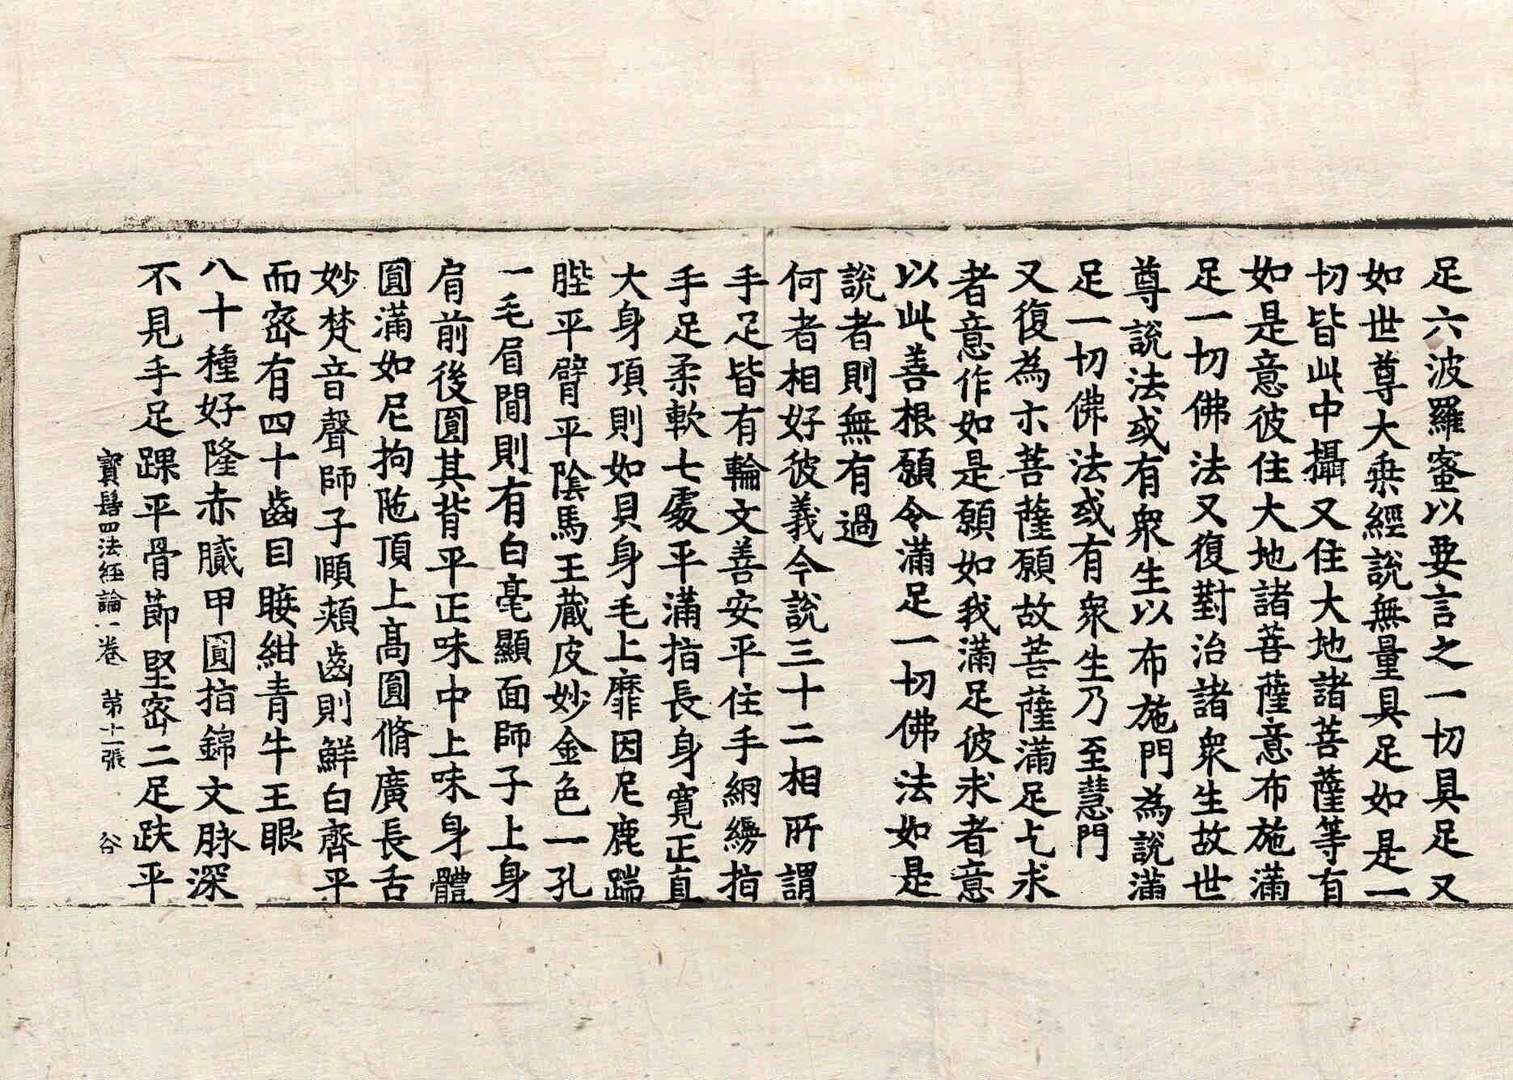 足六波羅蜜以要言之一切具足又
如世尊大乗經說無量具足如是一
切皆此中攝又住大地諸菩薩等有
如是意彼住大地諸菩薩意布施滿
足一切佛法又復對治諸衆生故世
尊說法或有衆生以布施門為說滿
足一切佛法或有衆生乃至慧門
又復為示菩薩願故菩薩滿足乞求
者意作如是願如我滿足彼求者意
以此善根願令滿足一切佛法如是
說者則無有過
何者相好彼義今說三十二相所謂
手足皆有輪文善安平住手網縵指
手足柔軟七處平滿指長身寬正直
大身項則如貝身毛上靡因尼鹿踹
䏶平臂平陰馬王藏皮妙金色一孔
一毛眉間則有白毫顯面師子上身
肩前後圓其背平正味中上味身體
圓滿如尼拘陁頂上高圓脩廣長舌
妙梵音聲師子頥頰齒則鮮白齊平
而密有四十齒目𥇒紺青牛王眼
八十種好隆赤膩甲圓指錦文脉深
不見手足踝平骨節堅密二足趺平
寶髻四法經論一卷 苐十一張 谷